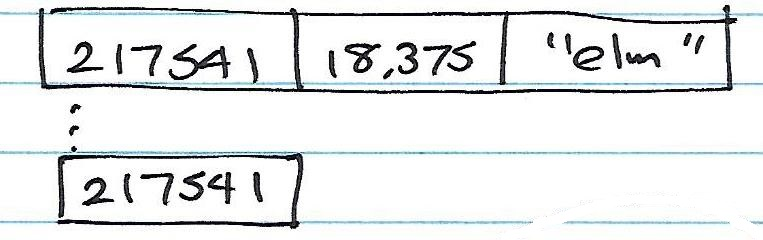 217541 18,375 "elm"
⋮
217541